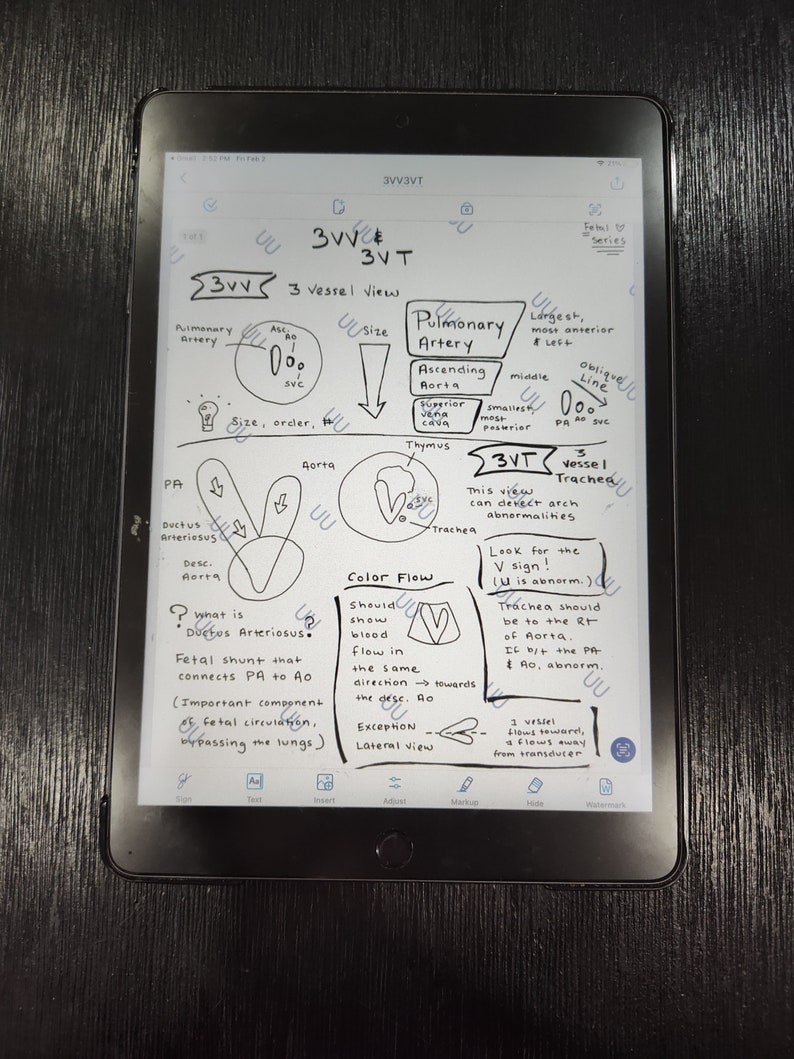 Gmail 2:52 PM Fri Feb 2
21%
3VV3VT
1 of 1
3VV &
3VT
Fetal
Series
3VV
3 Vessel View
Pulmonary
Artery
Asc.
Ao
SVC
Size
Pulmonary
Artery
Largest,
most anterior
& Left
Ascending
Aorta
middle
Superior
vena
cava
smallest,
most
posterior
Oblique
Line
PA Ao SVC
Size, order, #
PA
Aorta
Ductus
Arteriosus
Desc.
Aorta
Thymus
SVC
Trachea
3VT
3
Vessel
Trachea
This view
can detect arch
abnormalities
Look for the
V sign!
(U is abnorm.)
Trachea should
be to the Rt
of Aorta.
If b/t the PA
& Ao, abnorm.
? What is
Ductus Arteriosus?
Fetal shunt that
connects PA to Ao
(Important component
of fetal circulation,
bypassing the lungs)
Color Flow
Should
show
blood
flow in
the same
direction → towards
the desc. Ao
Exception
Lateral view
1 vessel
flows toward,
1 flows away
from transducer
Sign
Text
Insert
Adjust
Markup
Hide
Watermark